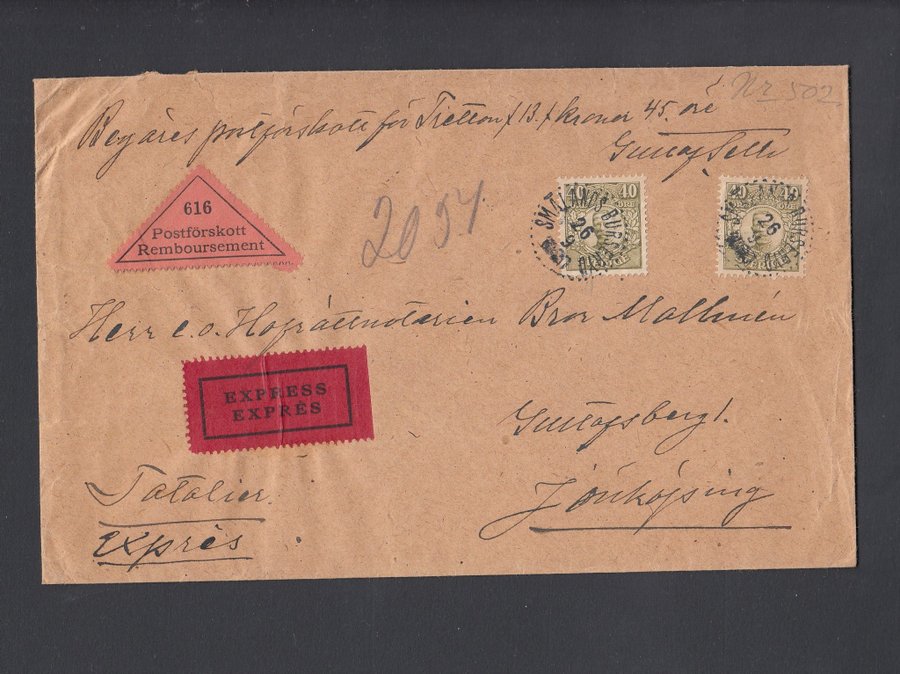 Nr 502
Begäres postförskott för Tretton /13./ kronor 45. öre
Gustaf
616
Postförskott
Remboursement
2054
40 40
SMÅLANDS BURSERYD
26
9
SMÅLANDS BURSERYD
26
9
Herr e.o. Hofrättnotarien Bror Mallmén
EXPRESS
EXPRÈS
Gustafsberg 1.
Jönköping
Exprès